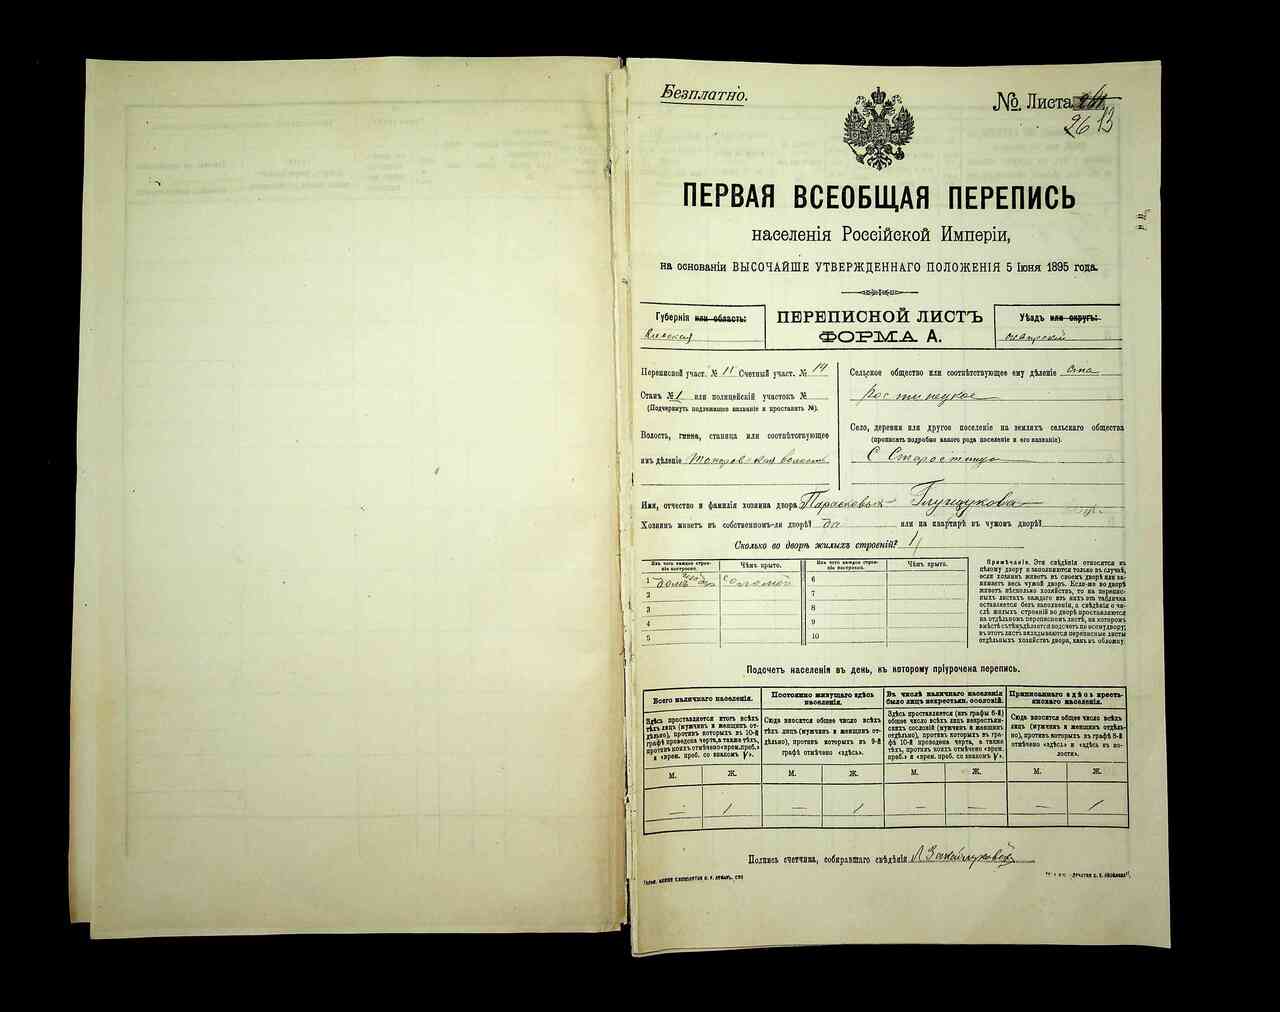 Безплатно.
№ Листа
26 13
ПЕРВАЯ ВСЕОБЩАЯ ПЕРЕПИСЬ
населенія Россійской Имперіи,
на основаніи ВЫСОЧАЙШЕ УТВЕРЖДЕННАГО ПОЛОЖЕНІЯ 5 Іюня 1895 года.
Губернія или область:
Кіевская
ПЕРЕПИСНОЙ ЛИСТЪ
ФОРМА А.
Уѣздъ или округъ:
Переписной участ. № 11 Счетный участ. № 14
Станъ № 1 или полицейскій участокъ №
(Подчеркнуть подлежащее названіе и проставить №).
Волость, гмина, станица или соотвѣтствующее
имъ дѣленіе
Сельское общество или соотвѣтствующее ему дѣленіе Ста
ростинецкое
Село, деревня или другое поселеніе на земляхъ сельскаго общества
(прописать подробно какого рода поселеніе и его названіе).
С Старостинцы
Имя, отчество и фамилія хозяина двора Парасковья Глущукова
Хозяинъ живетъ въ собственномъ-ли дворѣ? да или на квартирѣ въ чужомъ дворѣ?
Сколько во дворѣ жилыхъ строеній? 1
Изъ чего каждое строеніе построено.
Чѣмъ крыто.
Изъ чего каждое строеніе построено.
Чѣмъ крыто.
1 домъ соломой
2
3
4
5
6
7
8
9
10
Примѣчаніе. Эти свѣдѣнія относятся къ
цѣлому двору и заполняются только въ случаѣ,
если хозяинъ живетъ въ своемъ дворѣ или занимаетъ
весь чужой дворъ. Если-же во дворѣ
живетъ нѣсколько хозяйствъ, то на переписныхъ
листахъ каждаго изъ нихъ эта табличка
оставляется безъ заполненія, а свѣдѣнія о числѣ
жилыхъ строеній во дворѣ проставляются
на отдѣльномъ переписномъ листѣ, на которомъ
вмѣстѣ съ тѣмъ дѣлается подсчетъ по всему двору;
въ этотъ листъ вкладываются переписные листы
отдѣльныхъ хозяйствъ двора, какъ въ обложку.
Подсчетъ населенія въ день, къ которому пріурочена перепись.
Всего наличнаго населенія.
Постоянно живущаго здѣсь населенія.
Въ числѣ наличнаго населенія было лицъ некрестьян. сословій.
Приписаннаго здѣсь крестьянскаго населенія.
Здѣсь проставляется итогъ всѣхъ
тѣхъ лицъ (мужчинъ и женщинъ отдѣльно),
противъ которыхъ въ 10-й
графѣ проведена черта, а также тѣхъ,
противъ коихъ отмѣчено «врем. преб.»
и «врем. преб. со знакомъ V».
Сюда вносится общее число всѣхъ
лицъ (мужчинъ и женщинъ отдѣльно),
противъ которыхъ въ 9-й
графѣ отмѣчено «здѣсь».
Здѣсь проставляется (изъ графы 6-й)
общее число всѣхъ лицъ некрестьянскихъ
сословій (мужчинъ и женщинъ
отдѣльно), противъ которыхъ въ графѣ
10-й проведена черта, а также
тѣхъ, противъ коихъ отмѣчено «врем.
преб.» и «врем. преб. со знакомъ V».
Сюда вносится общее число всѣхъ
лицъ (мужчинъ и женщинъ отдѣльно),
противъ которыхъ въ графѣ 8-й
отмѣчено «здѣсь» и «здѣсь въ волости».
М. Ж. М. Ж. М. Ж. М. Ж.
— 1 — 1 — — — 1
Подпись счетчика, собиравшаго свѣдѣнія